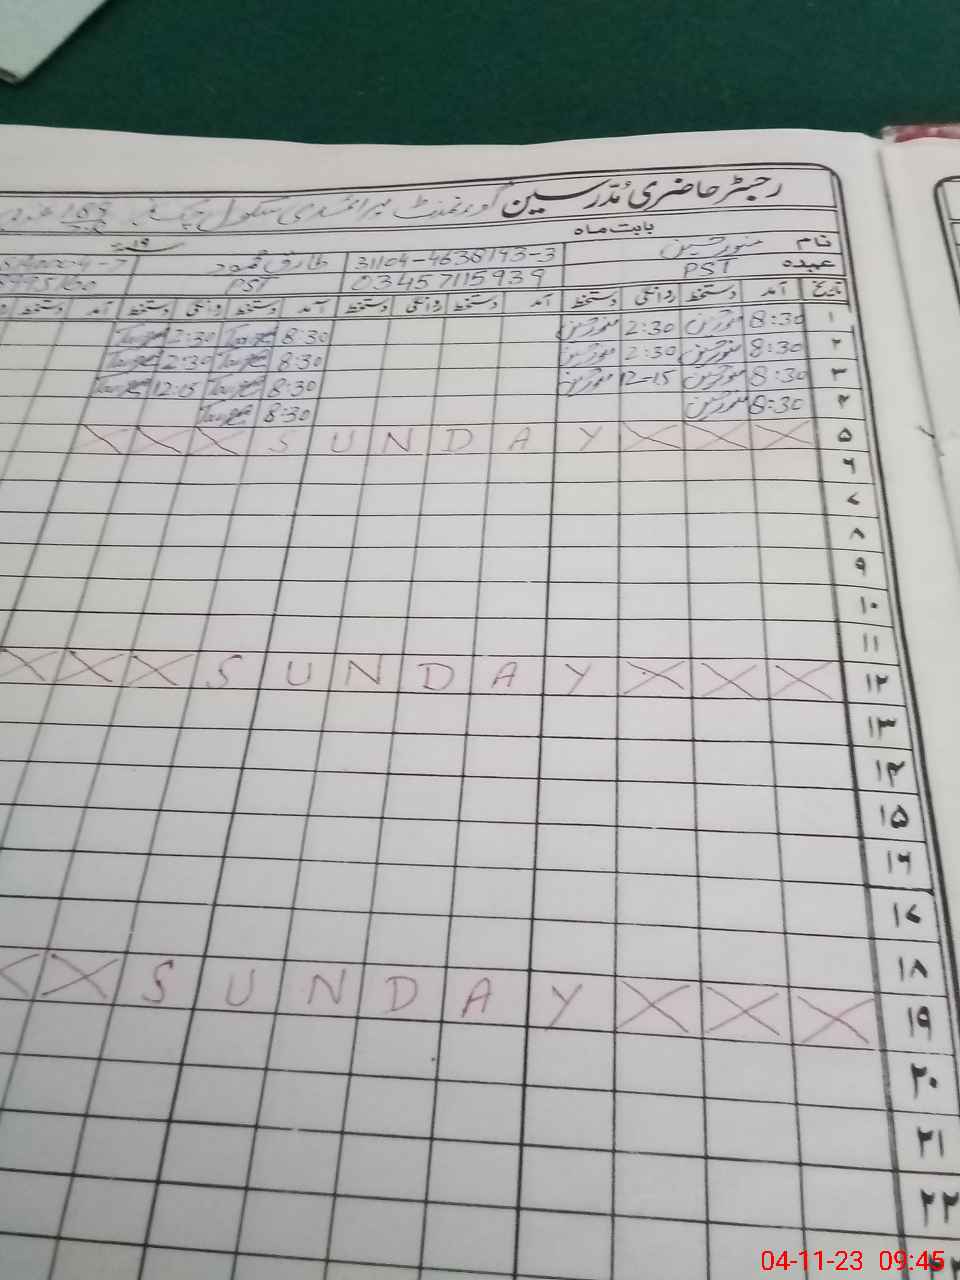 رجسٹر حاضری مدرسین گورنمنٹ پرائمری سکول چک نمبر 188
بابت ماہ ۱۹ء
نام منور حسین 31104-4638193-3 طارق محمود
عہدہ PST 03457115939 PST
تاریخ آمد دستخط روانگی دستخط آمد دستخط روانگی دستخط آمد دستخط روانگی دستخط آمد
۱ 8:30 منور حسین 2:30 منور حسین 8:30 2:30
۲ 8:30 منور حسین 2:30 منور حسین 8:30 2:30
۳ 8:30 منور حسین 12-15 منور حسین 8:30 12:15
۴ 8:30 منور حسین 8:30
۵ X X X S U N D A Y X X X
۶
۷
۸
۹
۱۰
۱۱
۱۲ X X X S U N D A Y X X X
۱۳
۱۴
۱۵
۱۶
۱۷
۱۸
۱۹ X X S U N D A Y X X X
۲۰
۲۱
۲۲
04-11-23 09:45